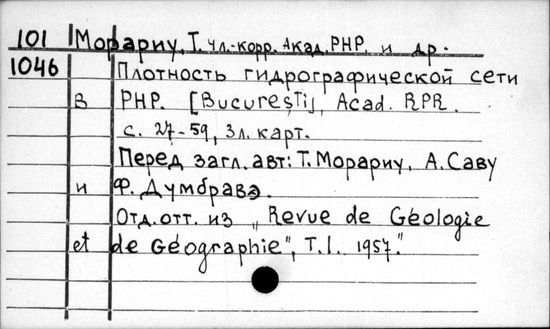 101 Морариу, Т. чл.-корр. Акад. РНР. и др.
1046 Плотность гидрографической сети
в РНР. [Bucureşti], Acad. RPR.
с. 27-59, 3л. карт.
Перед загл. авт: Т. Морариу, А. Саву
и Ф. Думбравэ.
Отд. отт. из „Revue de Géologie
et de Géographie", T. I. 1957."